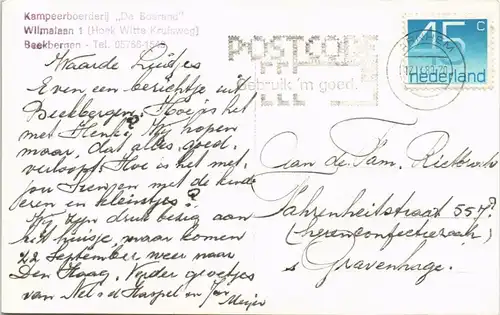 Kampeerboerderij "De Boemne"
Wilmalaan 1 (Hoek Witte Kruisweg)
Beekbergen - Tel. 05766-1645
Waarde Luitjes
Even een berichtje uit
Beekbergen. Hoe is het
met Henk? Wij hopen
maar, dat alles goed
verloopt. Hoe is het met
jou Treus en met de kinde
eren en kleintjes?
Wij zijn druk bezig aan
het huisje, maar komen
22 September weer naar
Den Haag. Verder groetjes
van Nel v d Haspel en Jan
Meijer
POSTCODE
Gebruik 'm goed.
ARNHEM
45 c
nederland
Aan de Fam. Rietk
Fahrenheitstraat 557?
(herenconfectiezaak)
s Gravenhage.